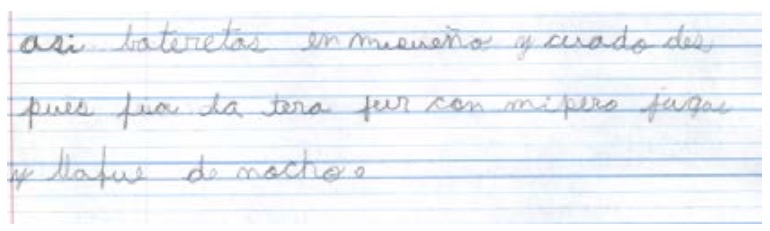 asi bateretas en mueueño y cuado des
pues fua la tera fur con mi pero jugar
y llafue de nocho.